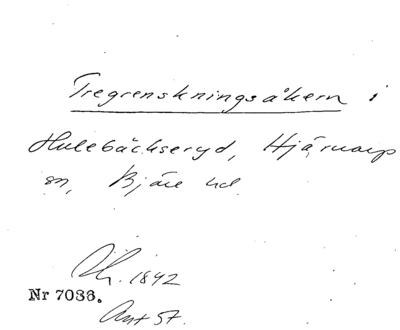 Tregrenskningsåkern i
Hulebäckseryd, Hjärnarp
sn, Bjäre hd
1842
Nr 7038.
Ant 57.